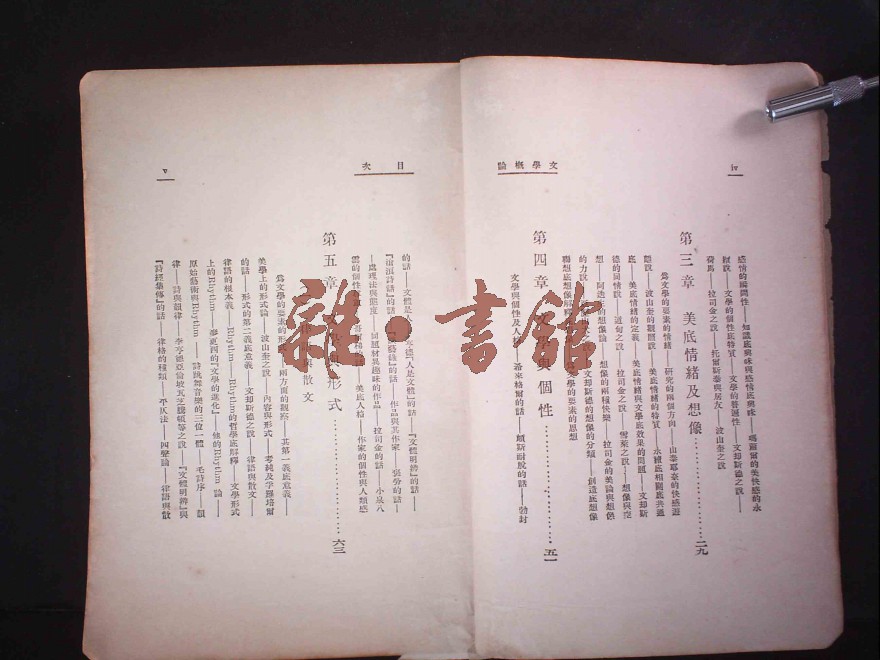 iv
文學概論
感情的瞬間性——知識底興味與感情底興味——瑪爾爾的美快感的永
續說——文學的個性底特質——文學的普遍性——文却斯德之說——
荷馬——拉司金之說——托爾斯泰與居友——波山奎之說
第三章 美底情緒及想像…………二九
為文學的要素的情緒——研究的兩個方向——山泰耶拿的快感
說——波山奎的觀照說——美底情緒與文學底效果的問題——文却斯
底——美底情緒的定義——美底情緒的特質——永續底相關底共通
德的同情說——拉司金之說——雪萊之說——想像與空
想——的想像論——兩種快樂——拉司金的美論與想像
的力說——文却斯德的想像的分類——創造底想像
聯想底想像解釋——文學的要素的思想
第四章 個性…………五一
文學與個性及人格——黑來格爾的話——頗斯耐脫的話——勃封
目次
v
的話——文體是人——「人是文體」的話——『文體明辨』的話——
『滄浪詩話』的話——的話——作品與其作家——的話——
處理法與態度——同題材異趣味的作品——拉司金的話——小泉八
雲的個性——美底人格——作家的個性與人類感
第五章 形式…………六三
與散文
為文學的要素的形——兩方面的觀察——其第一義底意義——
美學上的形式論——波山奎之說——內容與形式——及
的話——形式的第二義底意義——文却斯德之說——律語與散文——
律語的根本義——Rhythm——Rhythm的哲學底解釋——文學形式
上的Rhythm——的『文學的進化』——他的Rhythm論——
原始藝術與Rhythm——詩跳舞音樂的三位一體——毛詩序——韻
律——詩與韻律——等之說——『文體明辨』與
『詩經集傳』的話——律格的種類——平仄法——四聲論——律語與散